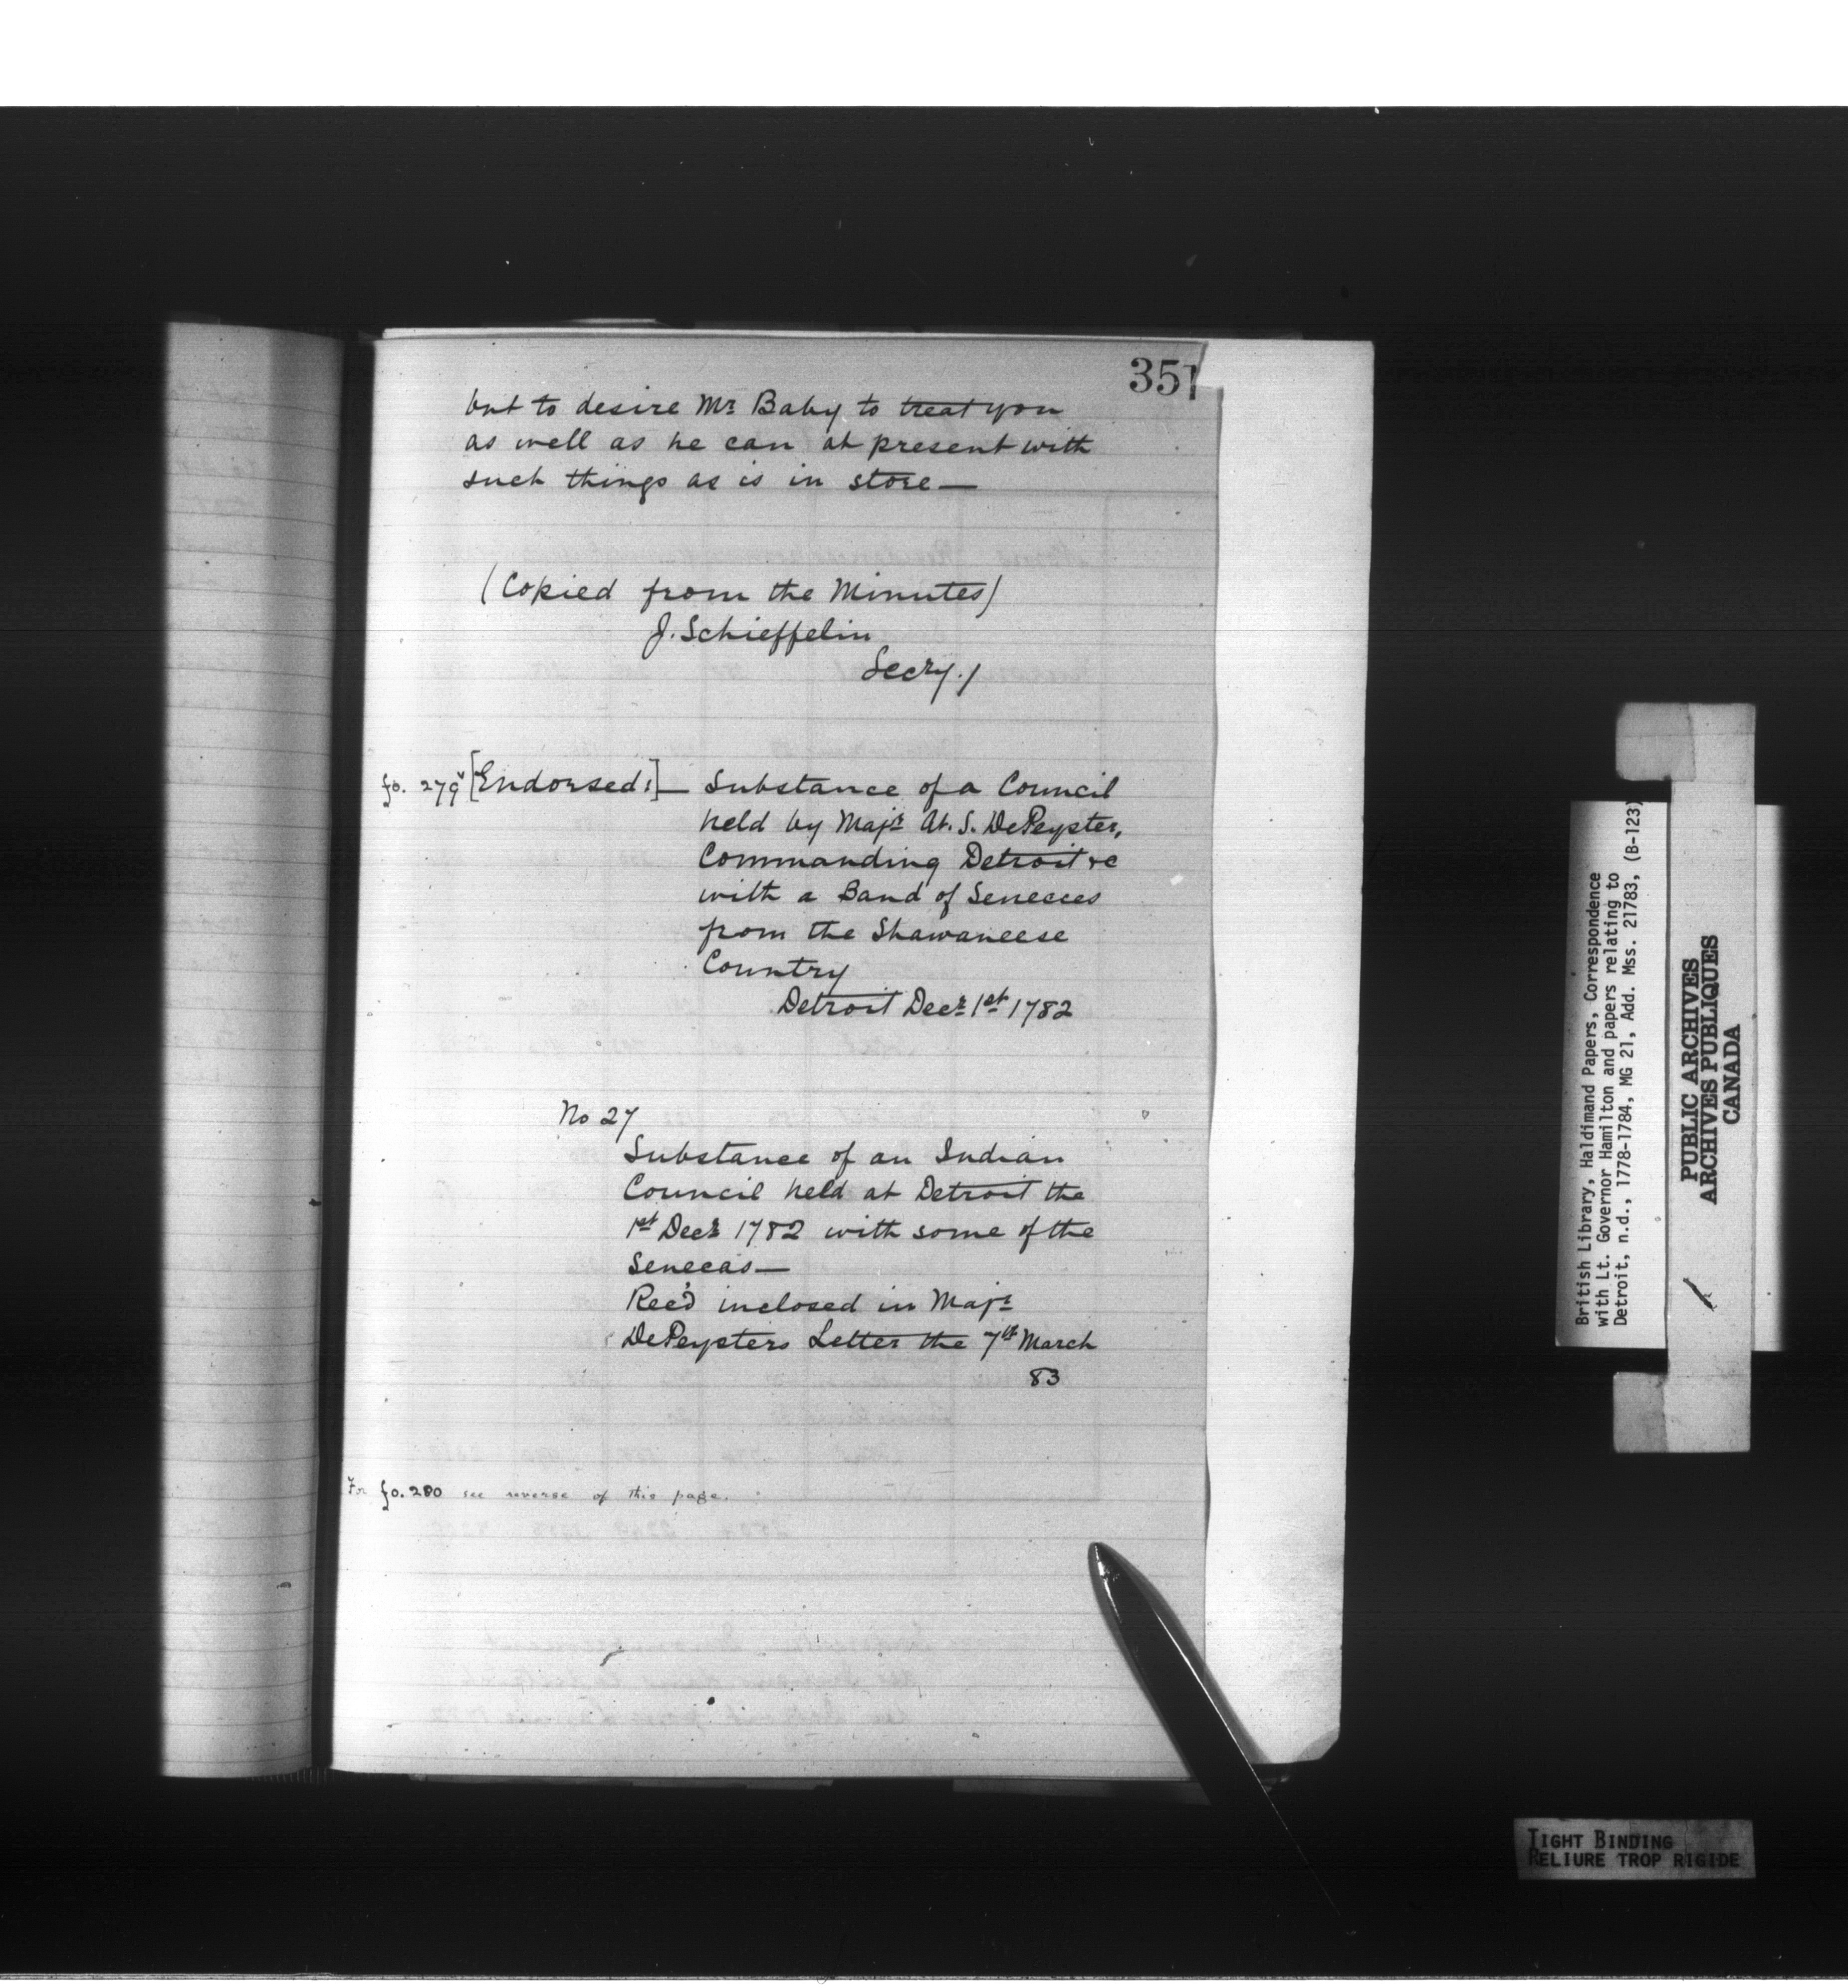 351
but to desire Mr Baby to treat you
as well as he can at present with
such things as is in store—
(Copied from the Minutes)
J. Schieffelin
Secry./
fo. 279v [Endorsed:]— Substance of a Council
held by Majr At. S. DePeyster,
Commanding Detroit &c
with a Band of Senecces
from the Shawaneese
Country
Detroit Decr 1st 1782
No 27
Substance of an Indian
Council held at Detroit the
1st Decr 1782 with some of the
Senecas—
Rec'd inclosed in Majr
DePeysters Letter the 7th March
83
For fo. 280 see reverse of this page.
British Library, Haldimand Papers, Correspondence
with Lt. Governor Hamilton and papers relating to
Detroit, n.d., 1778-1784, MG 21, Add. Mss. 21783, (B-123)
PUBLIC ARCHIVES
ARCHIVES PUBLIQUES
CANADA
TIGHT BINDING
RELIURE TROP RIGIDE